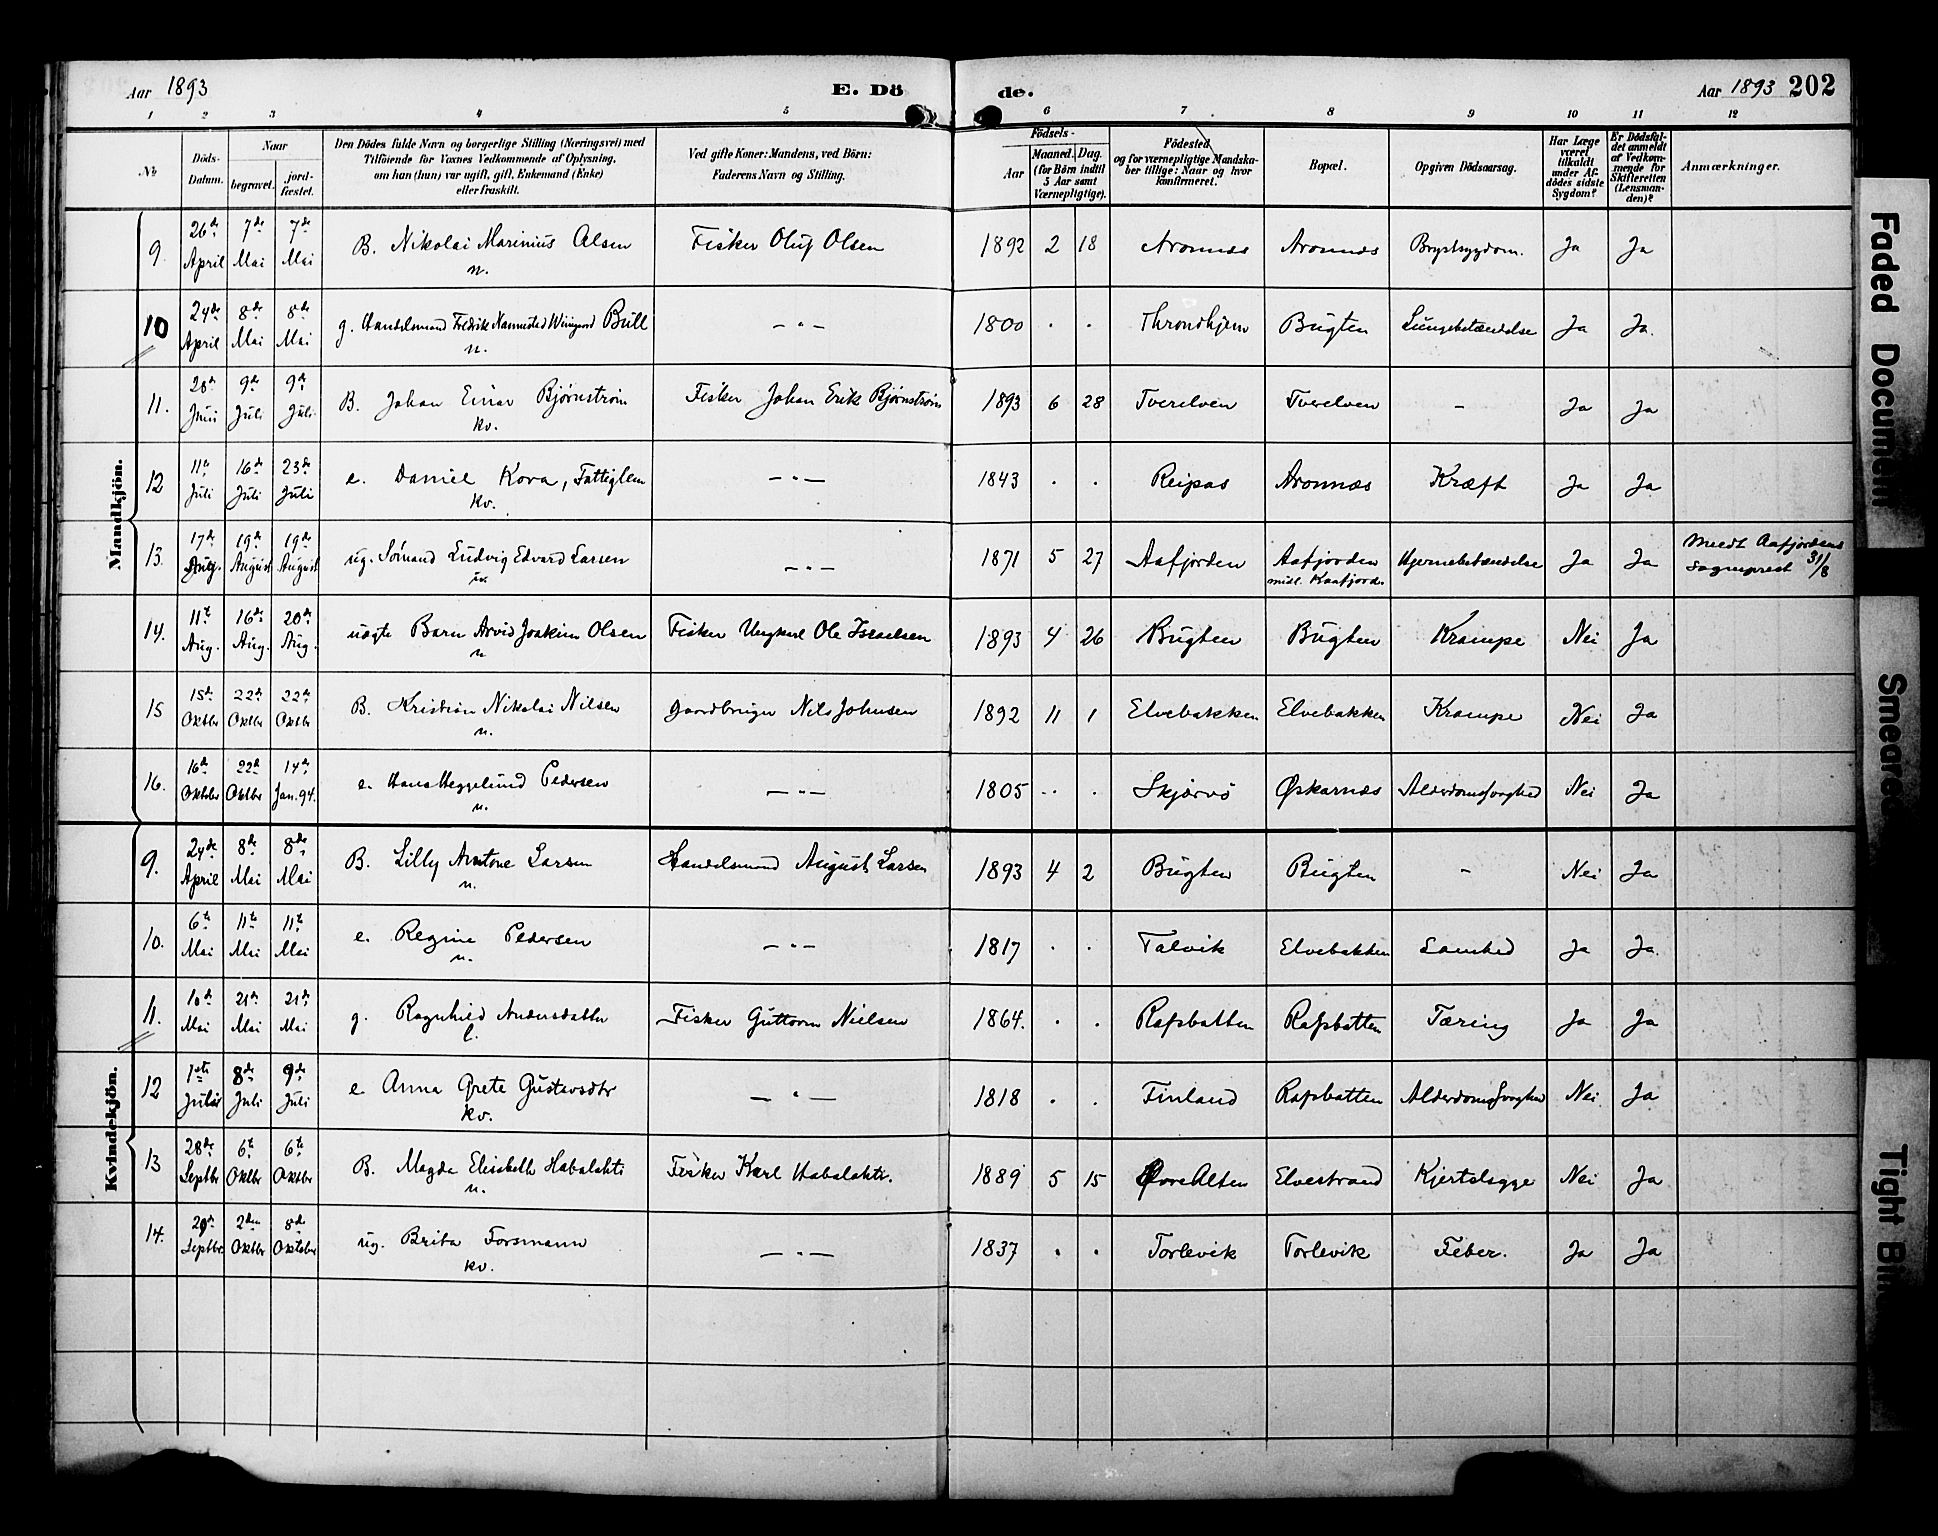 Aar 1893 E. Dö de. Aar 1893 202
1 2 3 4 5 6 7 8 9 10 11 12
№ Döds-Datum. Naar begravet. jord-fæstet. Den Dödes fulde Navn og borgerlige Stilling (Næringsvei) med Tilföiende for Voxnes Vedkommende af Oplysning, om han (hun) var ugift, gift, Enkemand (Enke) eller fraskilt. Ved gifte Koner: Mandens, ved Börn: Faderens Navn og Stilling. Födsels- Aar Maaned. Dag. (for Börn indtil 5 Aar samt Værnepligtige). Födested og for værnepligtige Mandskaber tillige: Naar og hvor konfirmeret. Bopæl. Opgiven Dödsaarsag. Har Læge været tilkaldt under Afdödes sidste Sygdom? Er Dödsfaldet anmeldt af Vedkommende for Skifteretten (Lensmanden)? Anmærkninger.
Mandkjön.
9. 26de April 7de Mai 7de Mai B. Nikolai Marinius Olsen n. Fisker Oluf Olsen 1892 2 18 Aronnes Aronnes Brystsygdom. Ja Ja
10 24de April 8de Mai 8de Mai g. Handelsmand Fredrik Bull n. — " — 1800 . . Throndhjem Bugten Lungebetændelse Ja Ja.
11. 28de Juni 9de Juli 9de Juli B. Johan Einar Bjørnstrøm kv. Fisker Johan Erik Bjørnstrøm 1893 6 28 Tverelven Tverelven – Ja Ja
12 11te Juli 16de Juli 23de Juli e. Daniel Kova, Fattiglem kv. — " — 1843 . . Reipas Aronnæs Kræft Ja Ja
13. 17de Aug. 19de August 19de August ug. Sømand Ludvig Edvard Larsen n. — " — 1871 5 27 Aafjorden Aafjorden midl. Kaafjord. Hjernebetændelse Ja Ja Meldt Aafjordens Sogneprest 31/8
14. 11te Aug. 16de Aug. 20de Aug. uægte Barn Arvid Joakim Olsen n Fisker Ungkarl Ole Israelsen 1893 4 26 Bugten Bugten Krampe Nei Ja
15 15de Oktbr 22de Oktbr 22de Oktbr B. Kristian Nikolai Nilsen n. Gaardbruger Nils Johnsen 1892 11 1 Elvebakken Elvebakken Krampe Nei Ja
16. 16de Oktober 22de Oktbr 14de Jan. 94. e. Hans Heggelund Pedersen n. — " — 1805 . . Skjærvø Øskarnæs Alderdomssvaghed Nei Ja
Kvindekjön.
9. 24de April 8de Mai 8de Mai B. Lilly Antone Larsen n. Handelsmand August Larsen 1893 4 2 Bugten Bugten – Nei Ja
10. 6te Mai 11te Mai 11te Mai e. Regine Pedersen n. — " — 1817 . . Talvik Elvebakken Lamhed Ja Ja.
11. 10de Mai 21de Mai 21de Mai g. Ragnhild Andersdatter l. Fisker Guttorm Nielsen 1864. . . Rafsbotten Rafsbotten Tæring Ja Ja
12 1ste Juli 8de Juli 9de Juli e. Anna Grete Gustavsdtr kv. — " — 1818 . . Finland Rafsbotten Alderdomssvaghed Nei Ja
13 28de Septbr 6te Oktbr 6te Oktbr B. Magda Elisabeth Habalahti n. Fisker Karl Habalahti. 1889 5 15 Øvre Alten Elvestrand Kjertelsyge Nei Ja
14. 29de Septbr. 2den Oktbr 8de Oktober ug. Brita Forsmann kv. — " — 1837 . . Torlevik Torlevik Feber. Ja Ja
Faded Document
Smeared
Tight Bin